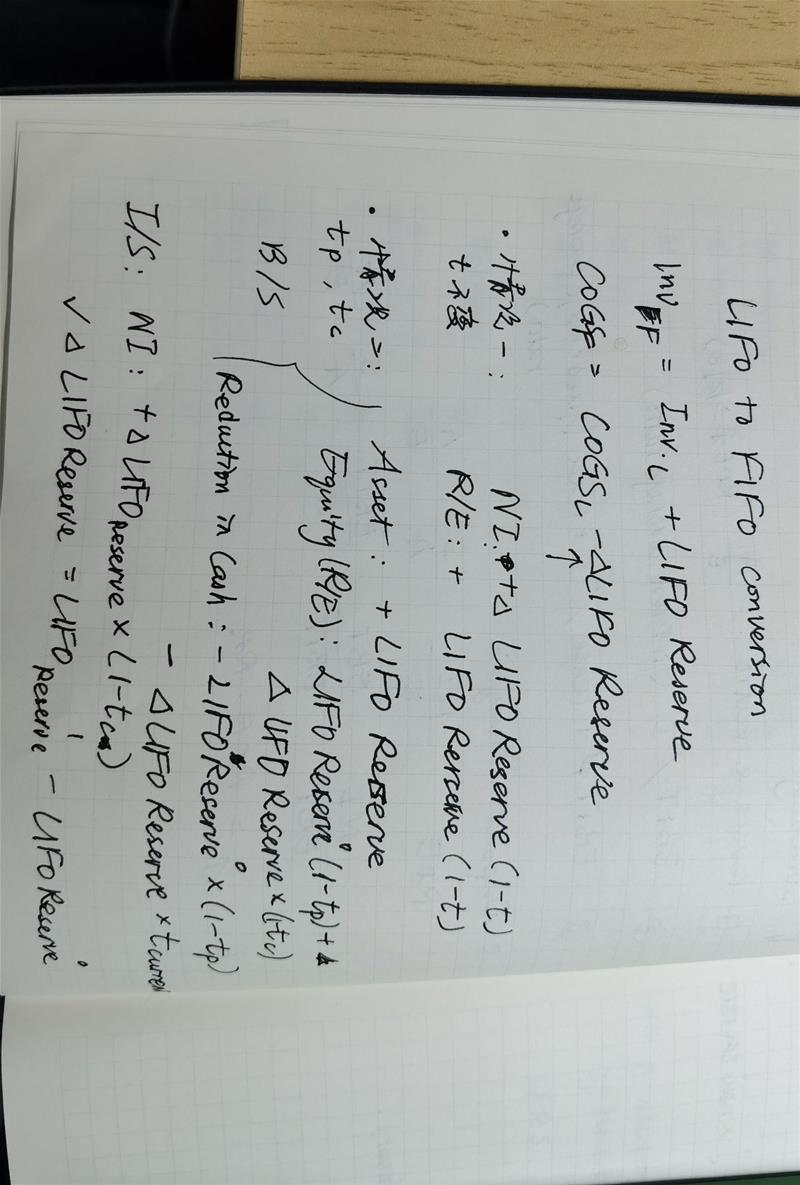 LIFO to FIFO conversion
Inv F = Inv. L + LIFO Reserve
COGSF = COGSL - ΔLIFO Reserve
• 情况一: NI: + Δ LIFO Reserve (1-t)
t不变 R/E: + LIFO Rerceve (1-t)
• 情况二: Asset: + LIFO Reserve
tp, tc Equity (R/E): LIFO Reserve⁰ (1-tp) +
B/S Δ LIFO Reserve × (1-tc)
Reduction in Cash: - LIFO Reserve⁰ × (1-tp)
- Δ LIFO Reserve × tcurrent
I/S: NI: + Δ LIFO Reserve × (1-tc)
✓ Δ LIFO Reserve = LIFO Reserve¹ - LIFO Reserve⁰